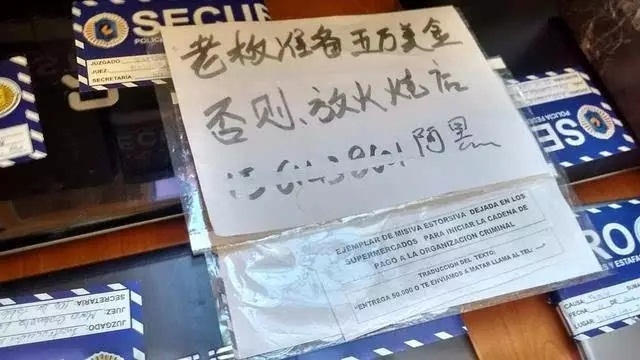 SECU
POLICIA
JUZGADO
JUEZ
SECRETARÍA
老板准备五万美金
否则、放火烧店
阿黑
EJEMPLAR DE MISIVA ESTORSIVA DEJADA EN LOS
SUPERMERCADOS PARA INICIAR LA CADENA DE
PAGO A LA ORGANIZACION CRIMINAL
TRADUCCION DEL TEXTO:
ENTREGA 50.000 O TE ENVIAMOS A MATAR LLAMA AL TEL
SECU
POLICÍA FEDE
RO
S Y ESTAFA
SECRETARÍA
JUEZ
JUZGADO
CAUSA
FECHA
LUGAR